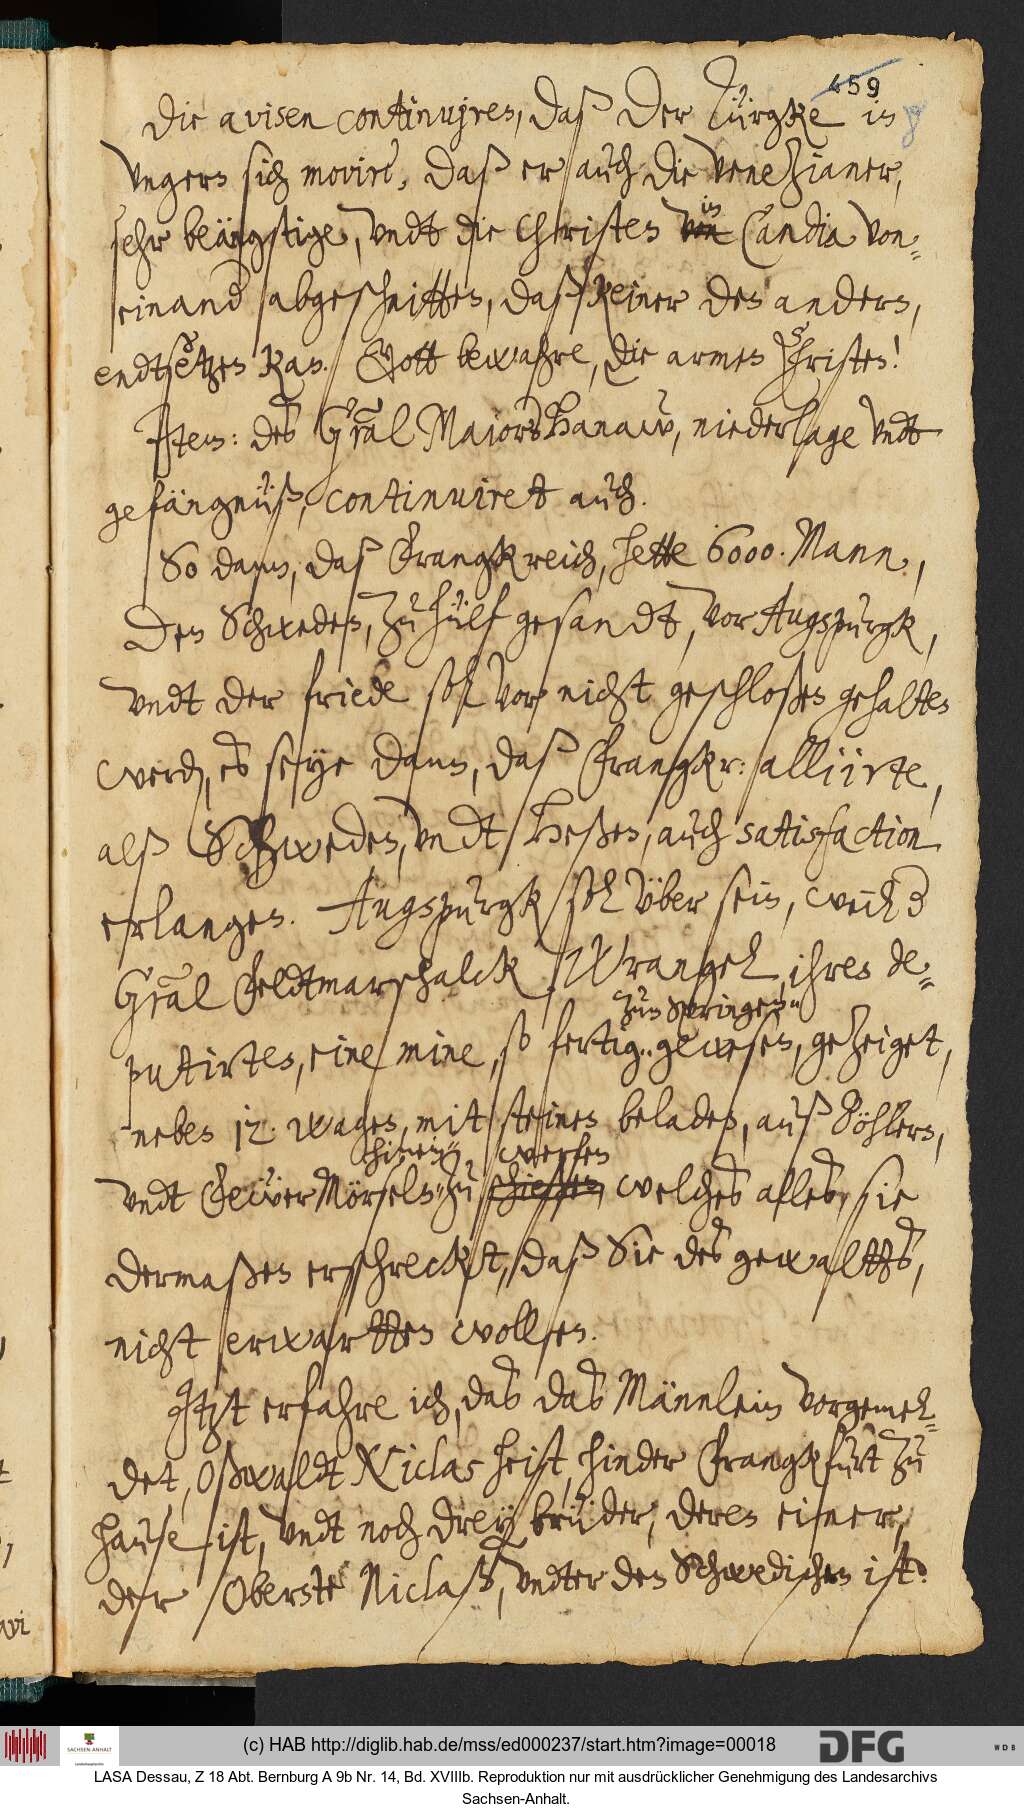 459
Die avisen continuiren, daß der Türgke in
Ungern sich movirt, daß er auch die Venezianer,
sehr beängstige, undt die Christen von in Candia von-
einand abgeschnitten, daß keiner den andern,
endtsetzen kan. Gott bewahre, die armen Christen!
Item: des Gräl Maiors Hanaw, niederlage undt
gefängnüß, continuiret auch.
So dann, daß Frangkreich, hette 6000. Mann,
den Schweden, zu hülf gesandt, vor Augspurgk,
undt der friede sol vor nicht geschloßen gehalten
werden, es seye dann, daß Frangkr: alliirte,
alß Schweden, undt Heßen, auch satisfaction
erlangen. Augspurgk sol über sein, weil
Gräl Feldtmarschalck Wrangel, ihren de-
zun springen
putirten, eine mine, so fertig gewesen, gezeiget,
neben 12. wagen, mit steinen beladen, auß Böhlern,
hinein werfen
undt Fewer Mörseln zu schießen welches alles, sie
dermaßen erschreckt, daß Sie des gewaltts,
nicht erwartten wollen.
Itzt erfahre ich, das das Männlein vorgemel-
det, Oßwaldt Niclas heist, hinder Frangkfurt zu
hause ist, undt noch drey brüder, deren einer,
der Oberste Niclaß, undter den Schwedischen ist.
(c) HAB http://diglib.hab.de/mss/ed000237/start.htm?image=00018
SACHSEN-ANHALT
DFG
WDB
LASA Dessau, Z 18 Abt. Bernburg A 9b Nr. 14, Bd. XVIIIb. Reproduktion nur mit ausdrücklicher Genehmigung des Landesarchivs
Sachsen-Anhalt.